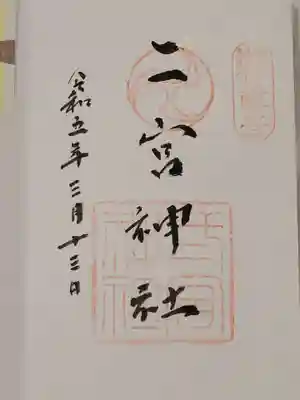 二宮神社
令和五年三月十三日